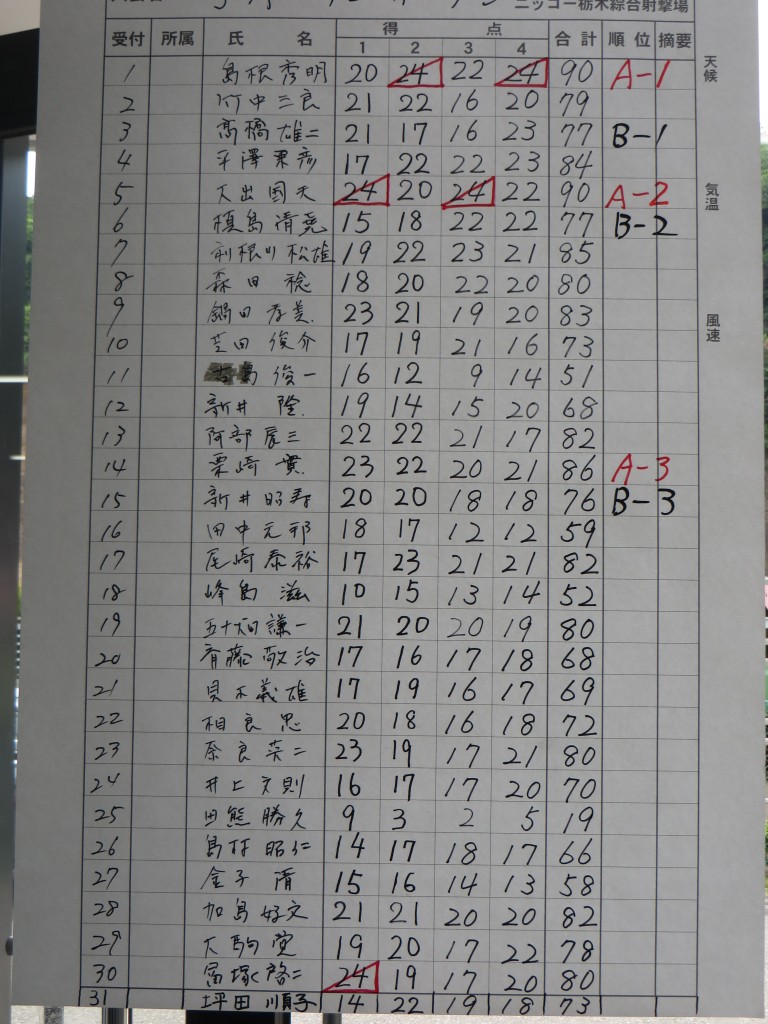 ニッコー栃木綜合射撃場
受付 所属 氏 名 得 点 合計 順位 摘要
1 2 3 4
天候
1 島根秀明 20 24 22 24 90 A-1
2 竹中三良 21 22 16 20 79
3 高橋雄二 21 17 16 23 77 B-1
4 平澤東彦 17 22 22 23 84
5 大出国夫 24 20 24 22 90 A-2
気温
6 榎島清尭 15 18 22 22 77 B-2
7 利根川松雄 19 22 23 21 85
8 森田稔 18 20 22 20 80
9 鍋田孝美 23 21 19 20 83
風速
10 芝田俊介 17 19 21 16 73
11 島俊一 16 12 9 14 51
12 新井隆 19 14 15 20 68
13 阿部辰三 22 22 21 17 82
14 栗崎實 23 22 20 21 86 A-3
15 新井昭寿 20 20 18 18 76 B-3
16 田中元邦 18 17 12 12 59
17 尾崎泰裕 17 23 21 21 82
18 峰島滋 10 15 13 14 52
19 五十畑謙一 21 20 20 19 80
20 斉藤敬治 17 16 17 18 68
21 貝木義雄 17 19 16 17 69
22 相良忠 20 18 16 18 72
23 奈良英二 23 19 17 21 80
24 井上文則 16 17 17 20 70
25 田熊勝久 9 3 2 5 19
26 島村昭仁 14 17 18 17 66
27 金子清 15 16 14 13 58
28 加島好文 21 21 20 20 82
29 大駒覚 19 20 17 22 78
30 冨塚啓二 24 19 17 20 80
31 坪田順子 14 22 19 18 73